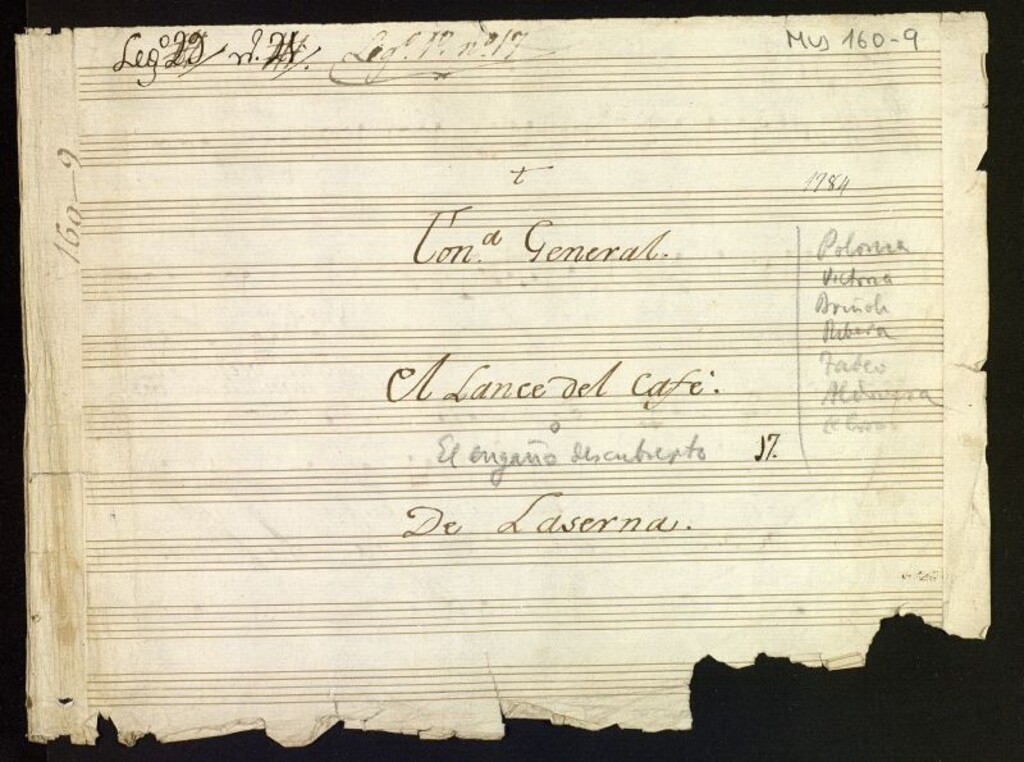 Leg.º 29 n.º 21. Leg.º 1º nº 17
Mus 160-9
160-9
t
1784
Ton.ª General.
Polonia
Victoria
Briñoli
Ribera
Tadeo
Aldovera
El Lance del Café.
o
El engaño descubierto 17.
De Laserna.